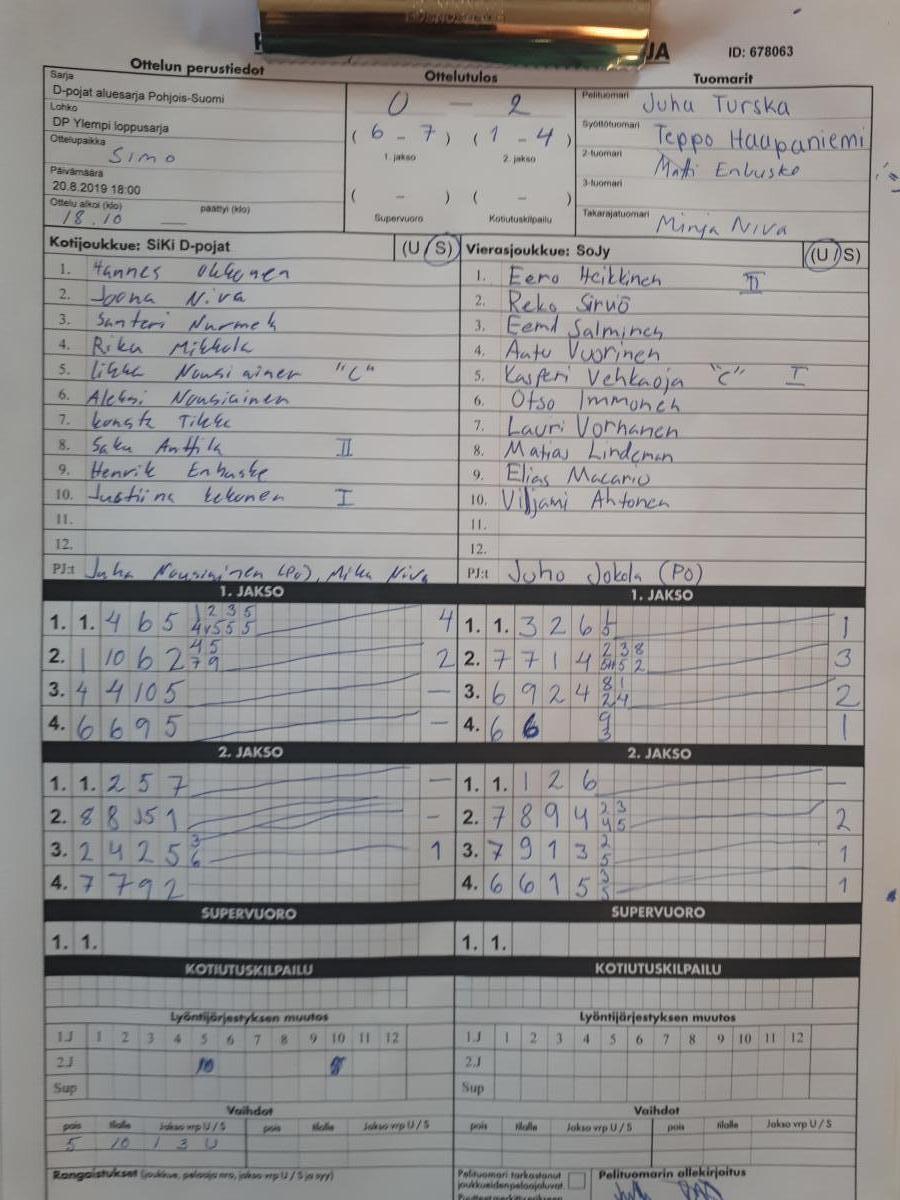 JA
ID: 678063
Ottelun perustiedot
Ottelutulos
Tuomarit
Sarja
D-pojat aluesarja Pohjois-Suomi
Lohko
DP Ylempi loppusarja
Ottelupaikka
Simo
Päivämäärä
20.8.2019 18:00
Ottelu alkoi (klo) päättyi (klo)
18.10
0 - 2
( 6 - 7 ) ( 1 - 4 )
1. jakso 2. jakso
( - ) ( - )
Supervuoro Kotiutuskilpailu
Pelituomari Juha Turska
Syöttötuomari Teppo Haapaniemi
2-tuomari Matti Enbuske
3-tuomari
Takarajatuomari Minja Niva
Kotijoukkue: SiKi D-pojat (U / S)
1. Hannes
2. Joona Niva
3. Santeri
4. Riku Mikkola
5. Iikka Nousiainen "C"
6. Aleksi Nousiainen
7. Tikka
8. Saku Anttila II
9. Henrik Enbuske
10. Justiina I
11.
12.
PJ:t Juha Nousiainen (PO), Mika Niva
Vierasjoukkue: SoJy (U / S)
1. Eero Heikkinen II
2. Reko Sirviö
3. Eemil Salminen
4. Aatu Vuorinen
5. Kasperi Vehkaoja "C" I
6. Otso Immonen
7. Lauri Vorhanen
8. Matias Lindeman
9. Elias Macario
10. Viljami Ahtonen
11.
12.
PJ:t Juho Jokela (PO)
1. JAKSO
1. 1. 4 6 5 4
2. 1 10 6 2 4 5 7 9 2
3. 4 4 10 5 -
4. 6 6 9 5 -
1. JAKSO
1. 1. 3 2 6 1
2. 7 7 1 4 3
3. 6 9 2 4 8 1 2 4 2
4. 6 6 9 3 1
2. JAKSO
1. 1. 2 5 7 -
2. 8 8 1 -
3. 2 4 2 5 3 6 1
4. 7 7 9 2
2. JAKSO
1. 1. 1 2 6 -
2. 7 8 9 4 2 3 4 5 2
3. 7 9 1 3 2 5 1
4. 6 6 1 5 3 5 1
SUPERVUORO
1. 1.
SUPERVUORO
1. 1.
KOTIUTUSKILPAILU
KOTIUTUSKILPAILU
Lyöntijärjestyksen muutos
1.J 1 2 3 4 5 6 7 8 9 10 11 12
2.J 10
Sup
Lyöntijärjestyksen muutos
1.J 1 2 3 4 5 6 7 8 9 10 11 12
2.J
Sup
Vaihdot
pois tilalle Jakso vrp U / S pois tilalle Jakso vrp U / S
5 10 1 3 U
Vaihdot
pois tilalle Jakso vrp U / S pois tilalle Jakso vrp U / S
Rangaistukset (joukkue, pelaaja nro, jakso vrp U / S ja syy)
Pelituomari tarkastanut
joukkueiden pelaajaluvat.
Pelituomarin allekirjoitus